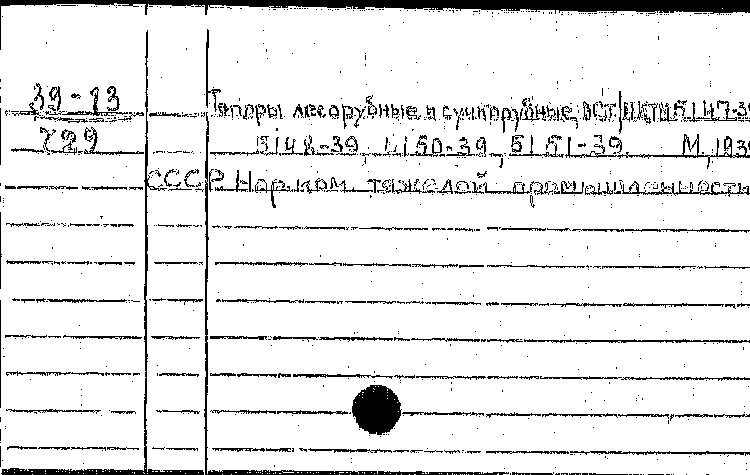 39-13
Топоры лесорубные и сучкорубные, ОСТ/НКТМ 5147-39
729
5148-39, 5150-39, 5151-39. М., 1939
СССР Нар. ком. тяжелой промышленности